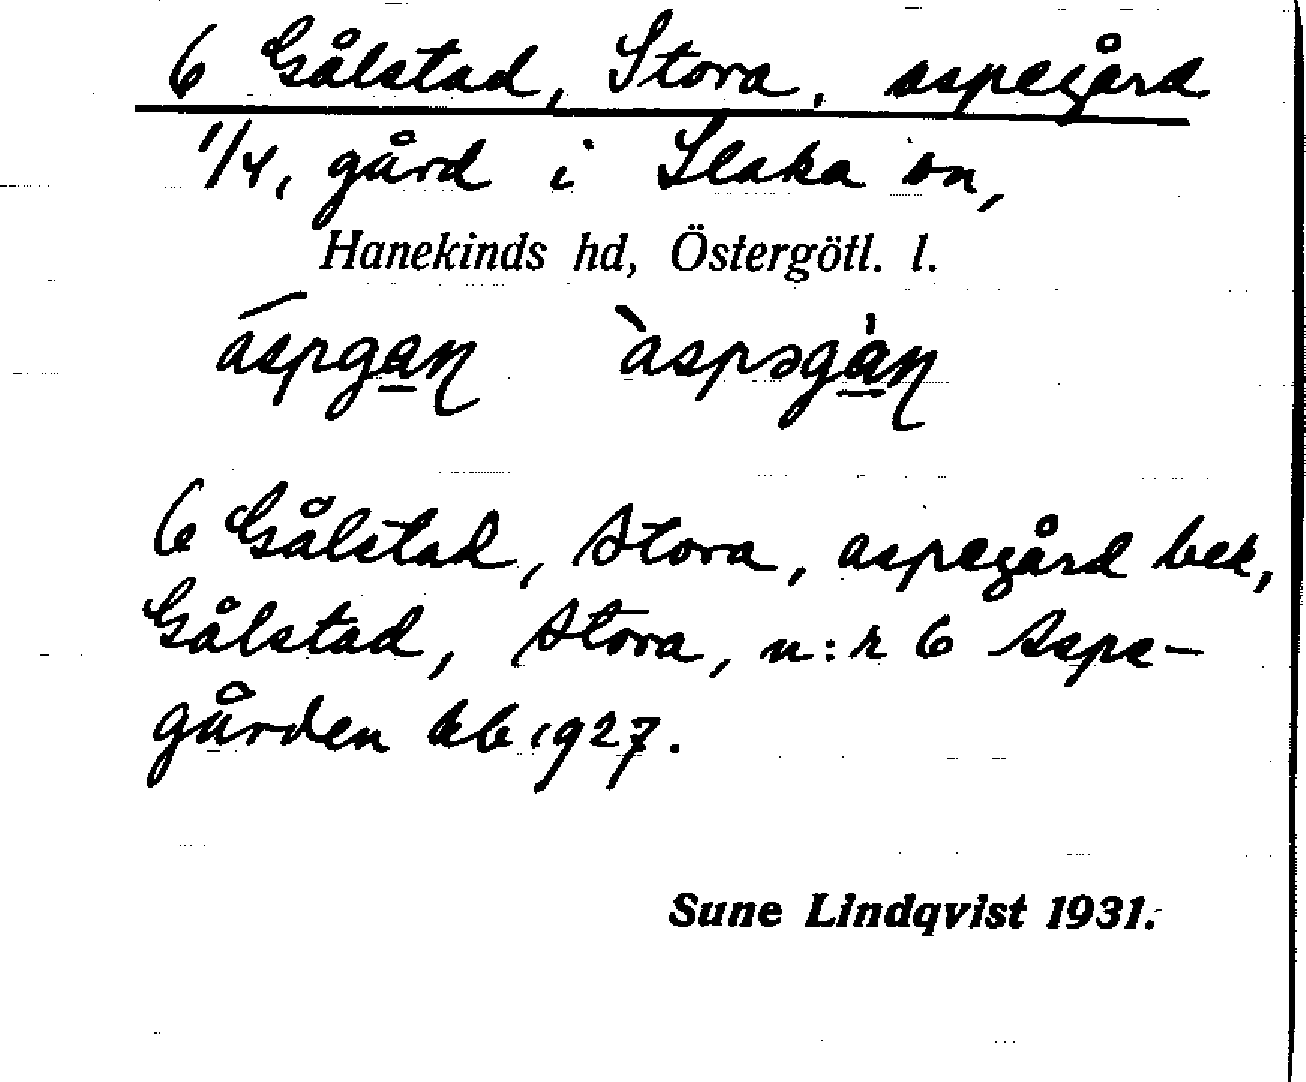 6 Gålstad, Stora, aspegård
1/4, gård i Slaka sn,
Hanekinds hd, Östergötl. l.
áspga̲ɳ àspəgà̲ɳ
6 Gålstad, Stora, aspegård bek,
Gålstad, Stora, n:r 6 Aspe-
gården kb 1927.
Sune Lindqvist 1931.